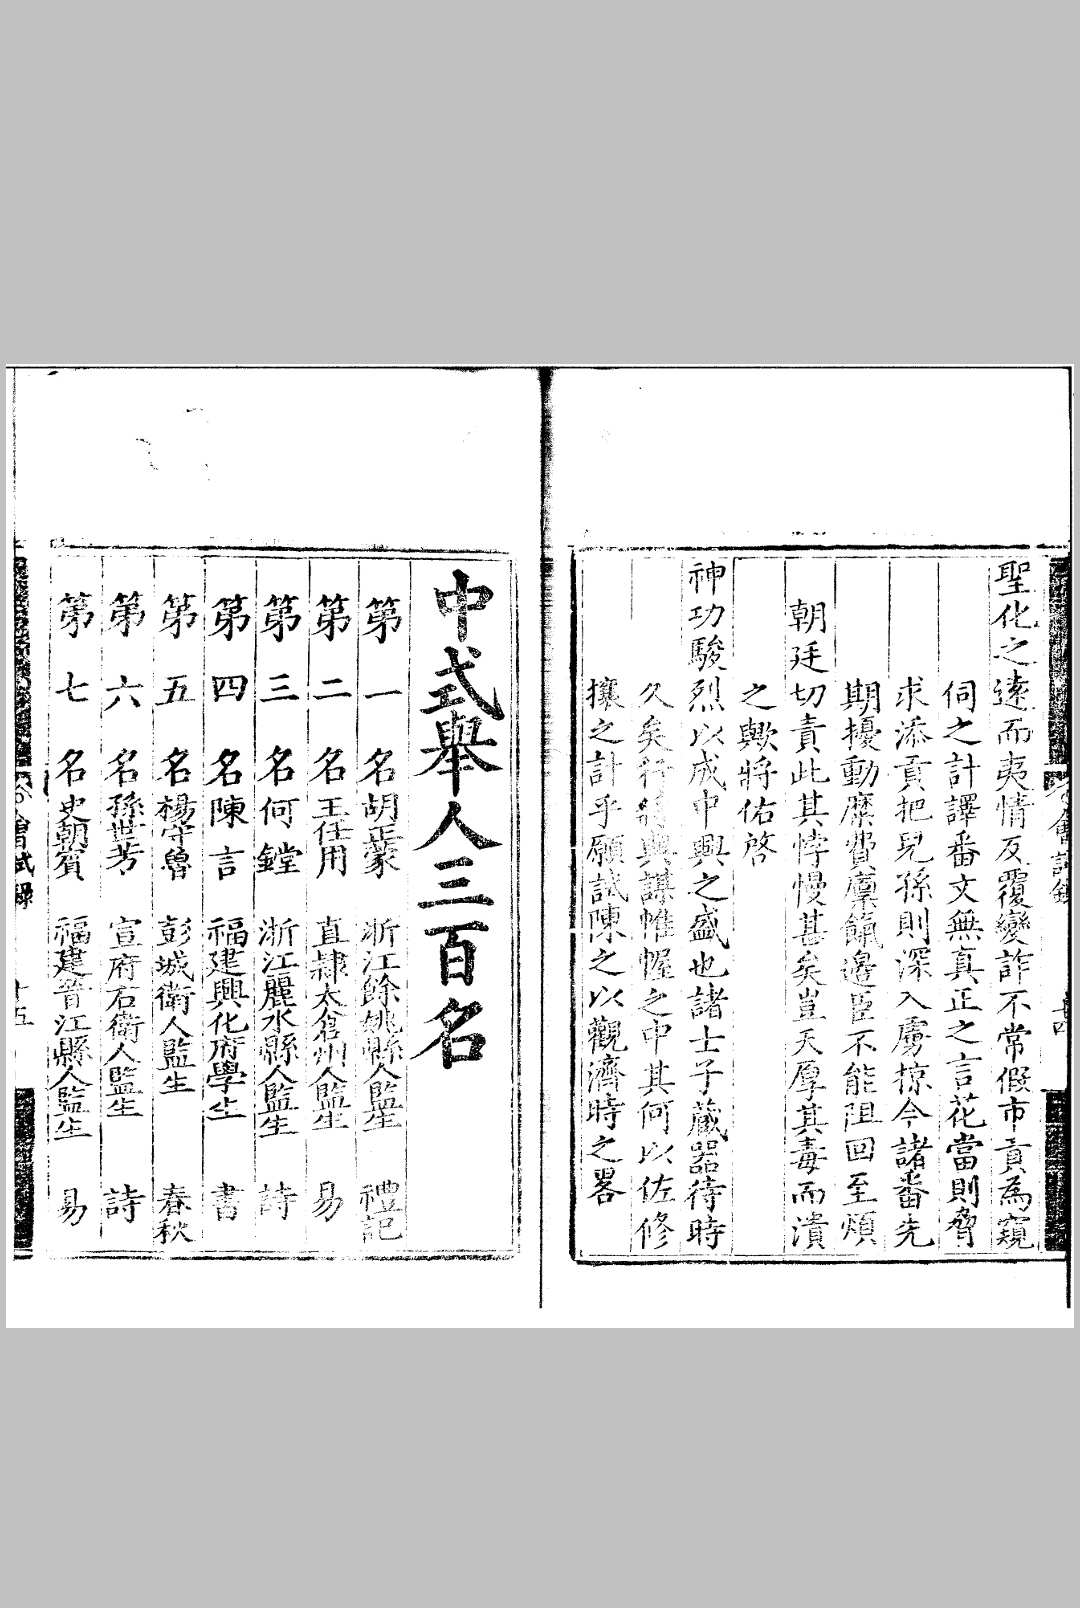 聖化之遠而夷情反覆變詐不常假市貢為窺
伺之計譯番文無真正之言花當則脅
求添貢把兒孫則深入虜掠今諸番先
期擾動糜費廩餼邊臣不能阻回至煩
朝廷切責此其悖慢甚矣豈天厚其毒而潰
之歟將佑啓
神功駿烈以成中興之盛也諸士子藏器待時
久矣行與謀帷幄之中其何以佐修
攘之計乎願試陳之以觀濟時之畧
會試錄
十四
中式舉人三百名
第一名胡正蒙 浙江餘姚縣人監生 禮記
第二名王任用 直隸太倉州人監生 易
第三名何鏜 浙江麗水縣人監生 詩
第四名陳言 福建興化府學生 書
第五名楊守魯 彭城衛人監生 春秋
第六名孫世芳 宣府右衛人監生 詩
第七名史朝賓 福建晉江縣人監生 易
會試錄
十五